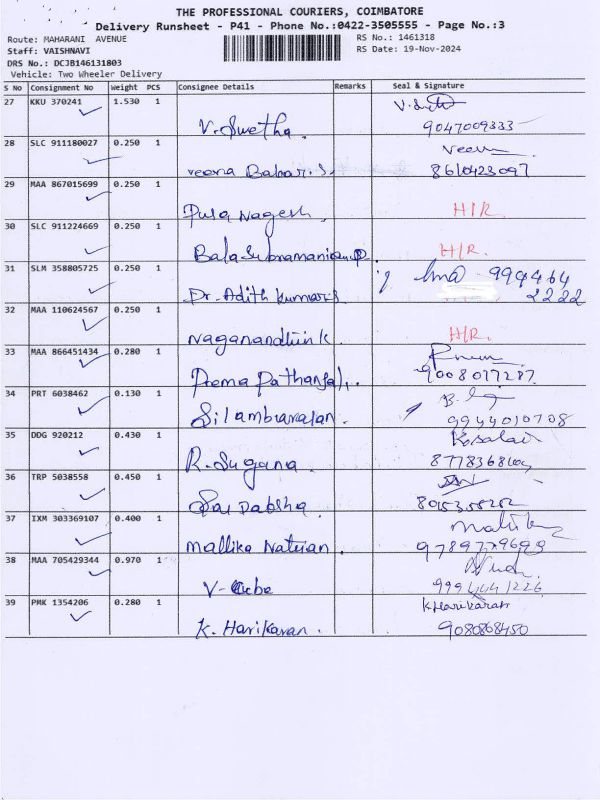 THE PROFESSIONAL COURIERS, COIMBATORE
Delivery Runsheet - P41 - Phone No.:0422-3505555 - Page No.:3
Route: MAHARANI AVENUE RS No.: 1461318
Staff: VAISHNAVI RS Date: 19-Nov-2024
DRS No.: DCJB146131803
Vehicle: Two Wheeler Delivery
S No Consignment No Weight PCS Consignee Details Remarks Seal & Signature
27 KKU 370241 1.530 1
V. Swetha. 9047009333
28 SLC 911180027 0.250 1 Veena
veena Babar. S. 8610423097
29 MAA 867015699 0.250 1
Puja Nagesh H/R.
30 SLC 911224669 0.250 1
Balasubramanian P. H/R.
31 SLM 358805725 0.250 1 994464
Dr. Adith kumar S 2222
32 MAA 110624567 0.250 1
Naganandhin k H/R.
33 MAA 866451434 0.280 1
Prema Pathanjali. 9008017287
34 PRT 6038462 0.130 1
Silambarasan. 9944010708
35 DDG 920212 0.430 1 Kosalai
R. Sugana. 8778368
36 TRP 5038558 0.450 1
Sai Daksha
37 IXM 303369107 0.400 1
Mallika Natrian. 9789729699
38 MAA 705429344 0.970 1
V- 9994441226
39 PMK 1354206 0.280 1 K Harikaran
K. Harikaran. 9080868450